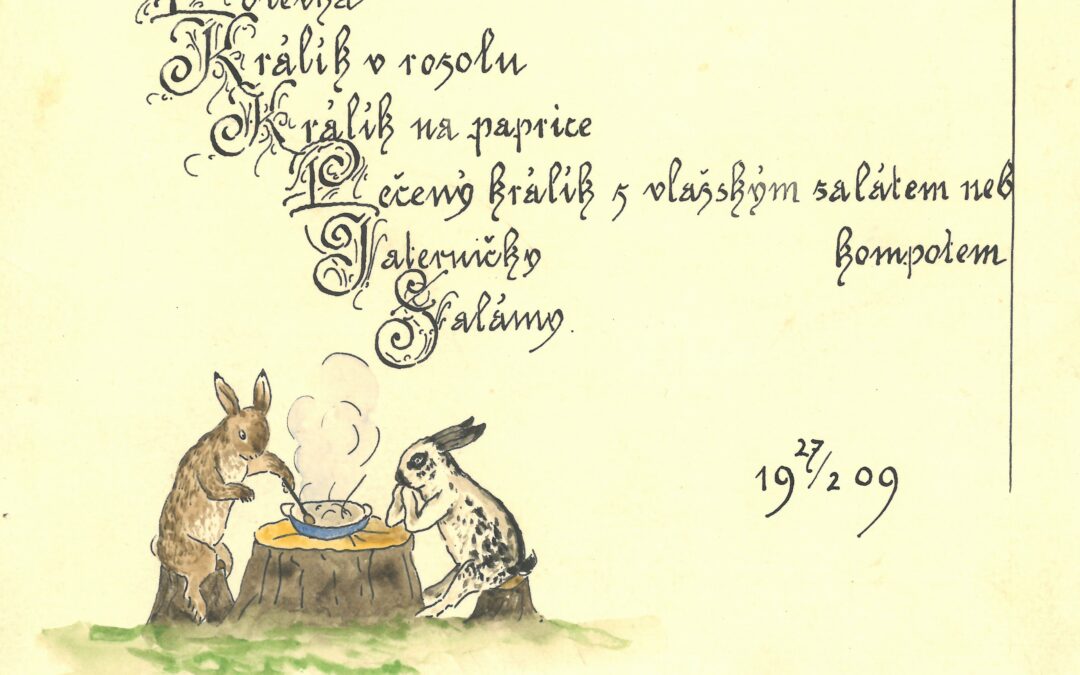 Polévka
Králík v rosolu
Králík na paprice
Pečený králík s vlašským salátem neb
kompotem
Jaterničky
Salámy.
19 27/2 09